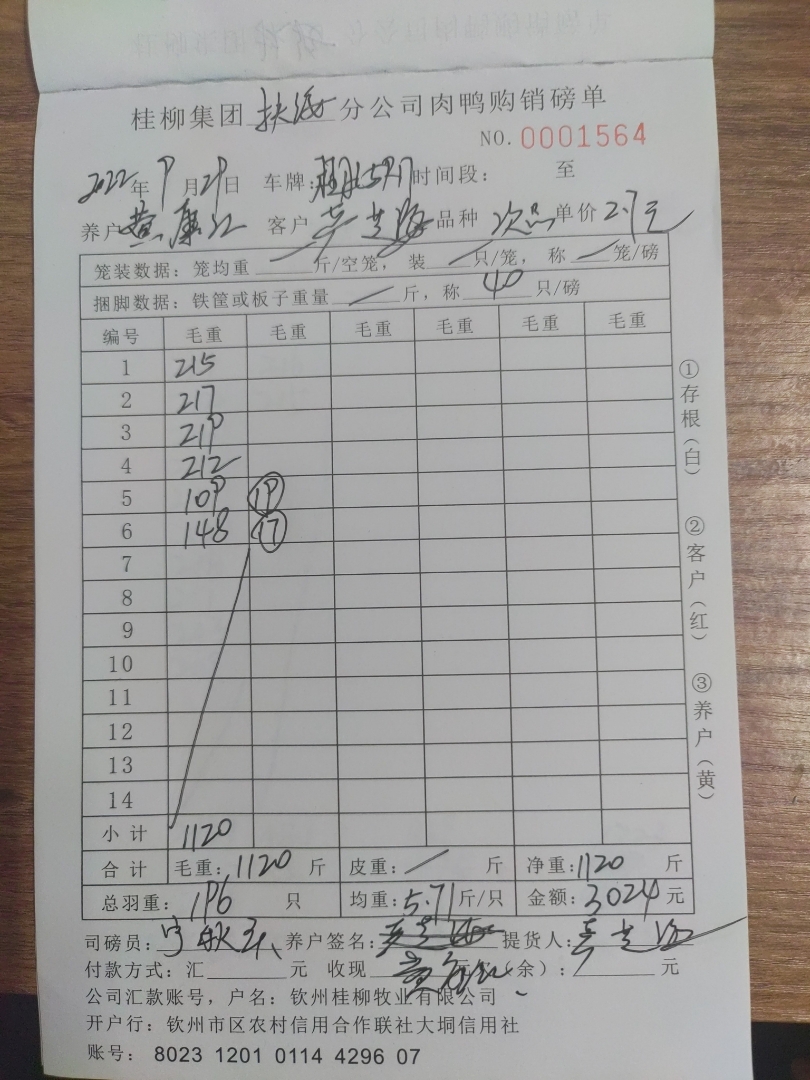 桂柳集团 扶绥 分公司肉鸭购销磅单
NO. 0001564
2022年 9月29日 车牌: 时间段: 至
养户 黄廉江 客户 品种 次品 单价 2.7元
笼装数据: 笼均重 / 斤/空笼, 装 / 只/笼, 称 / 笼/磅
捆脚数据: 铁筐或板子重量 / 斤, 称 40 只/磅
编号 毛重 毛重 毛重 毛重 毛重 毛重
1 215
2 217
3 219
4 212
5 109 19
6 148 17
7
8
9
10
11
12
13
14
小计 1120
合计 毛重: 1120 斤 皮重: / 斤 净重: 1120 斤
总羽重: 196 只 均重: 5.71 斤/只 金额: 3024 元
司磅员: 养户签名: 提货人:
付款方式: 汇 元 收现 (余): 元
公司汇款账号, 户名: 钦州桂柳牧业有限公司
开户行: 钦州市区农村信用合作联社大垌信用社
账号: 8023 1201 0114 4296 07
①存根(白)
②客户(红)
③养户(黄)